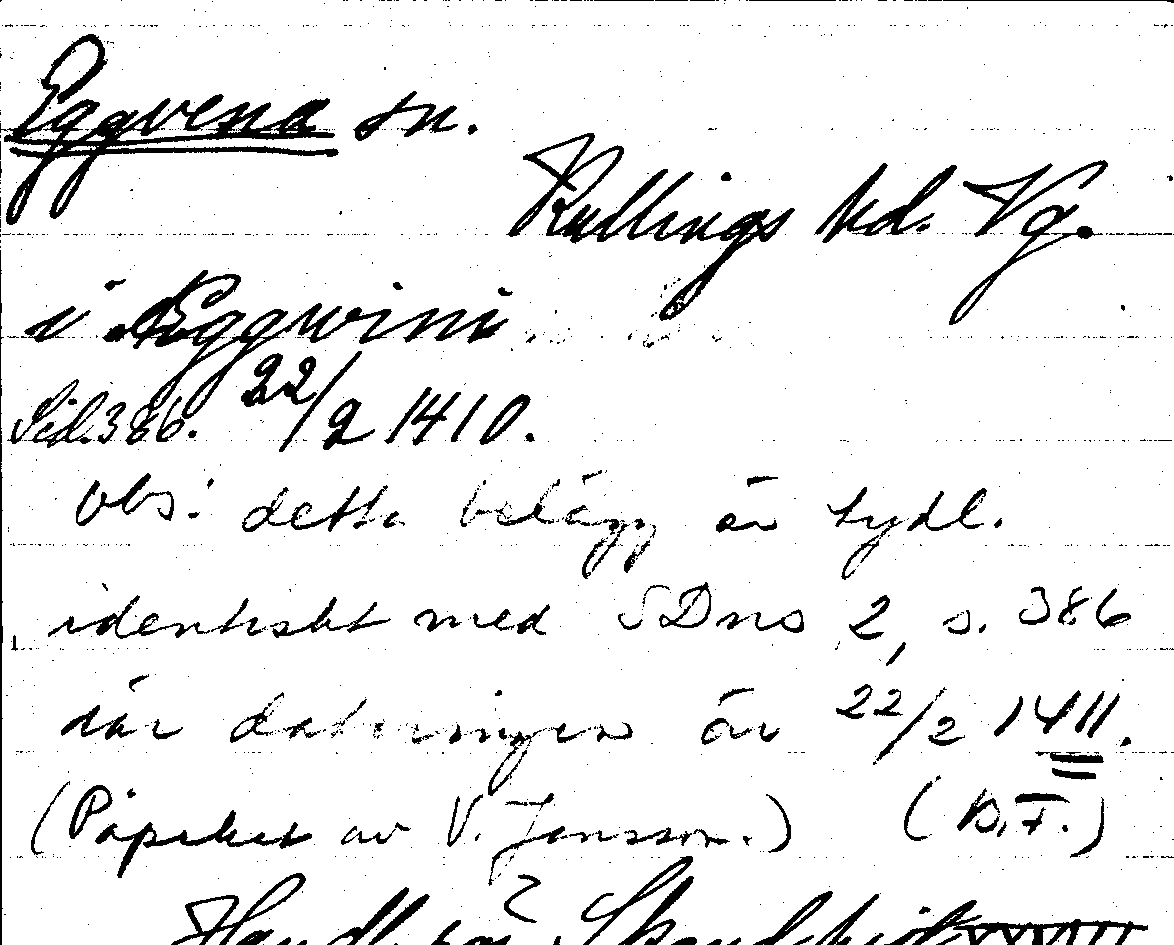 Eggvena sn.
Kullings hd. Vg.
i Eggwini
Sid. 386. 22/2 1410.
obs! detta belägg är tydl.
identiskt med SDns 2, s. 386
där dateringen är 22/2 1411.
(Påpekat av V. Jansson.) (B.F.)
Handl. rör Skand. hist XXXVIII